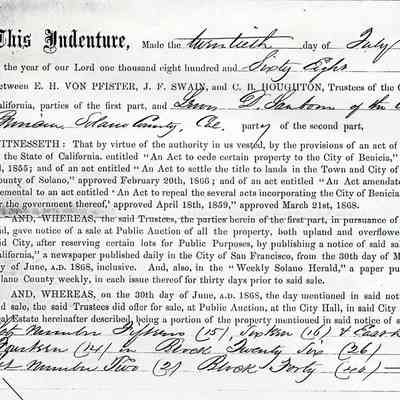 This Indenture, Made the twentieth day of July
the year of our Lord one thousand eight hundred and Sixty Eight
between E. H. VON PFISTER, J. F. SWAIN, and C. B. HOUGHTON, Trustees of the C
alifornia, parties of the first part, and D. of the
Benicia Solano County, Cal. party of the second part,
WITNESSETH: That by virtue of the authority in us vested, by the provisions of an act of
the State of California, entitled "An Act to cede certain property to the City of Benicia,"
, 1855; and of an act entitled "An Act to settle the title to lands in the Town and City of
ounty of Solano," approved February 20th, 1866; and of an Act entitled "An Act amendate
emental to an act entitled 'An Act to repeal the several acts incorporating the City of Benicia
r the government thereof,' approved April 18th, 1859," approved March 21st, 1868.
AND, WHEREAS, the said Trustees, the parties herein of the first part, in pursuance of
nd, gave notice of a sale at Public Auction of all the property, both upland and overflowe
id City, after reserving certain lots for Public Purposes, by publishing a notice of said sal
alifornia," a newspaper published daily in the City of San Francisco, from the 30th day of M
y of June, A.D. 1868, inclusive. And, also, in the "Weekly Solano Herald," a paper pu
lano County weekly, in each issue thereof for thirty days prior to said sale.
AND, WHEREAS, on the 30th day of June, A.D. 1868, the day mentioned in said not
d sale, the said Trustees did offer for sale, at Public Auction, at the City Hall, in said City
eal Estate hereinafter described, being a portion of the property mentioned in said notice of s
Number Fifteen (15), Sixteen (16) & East
Fourteen (14) in Block Twenty Six (26)
Number Two (2) Block Forty (40)